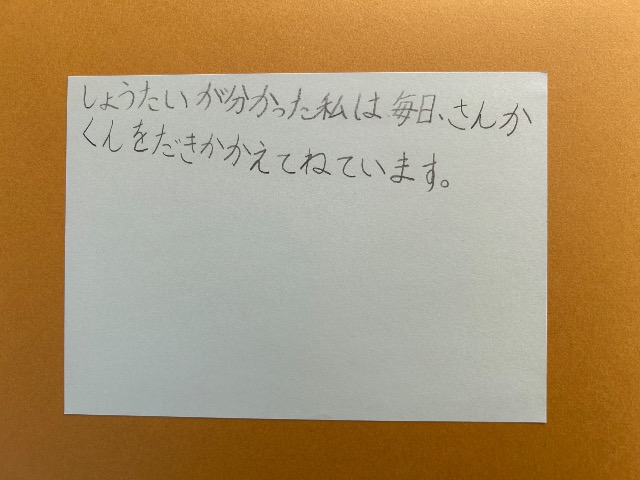 しょうたいが分かった私は毎日、さんか
くんをだきかかえてねています。